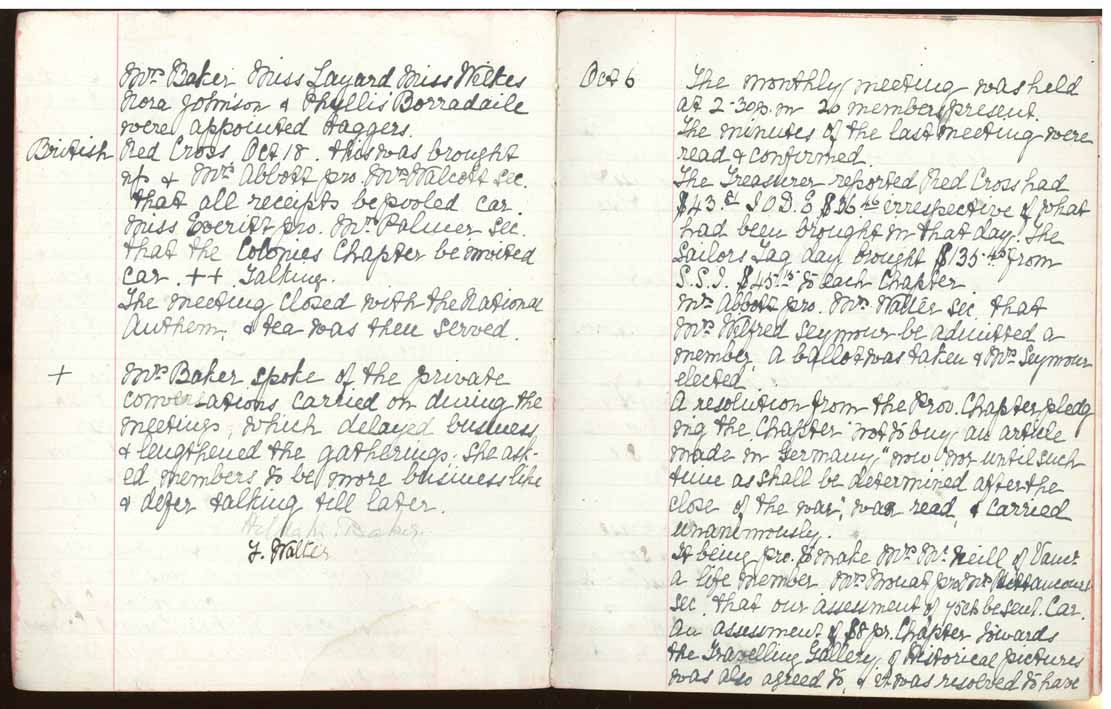 Mrs Baker Miss Layard Miss Wilkes
Nora Johnson & Phyllis Borradaile
were appointed taggers.
British Red Cross Oct 18. This was brought
up & Mrs Abbott pro. Mrs Walcott sec.
that all receipts be pooled car.
Miss Everitt pro. Mrs Palmer sec.
that the Colonies Chapter be invited
car. ++ Talking.
The meeting closed with the National
Anthem, & tea was then served.
+ Mrs Baker spoke of the private
conversations carried on during the
meetings, which delayed business
& lengthened the gatherings. She ask-
ed members to be more businesslike
& defer talking till later.
Baker
J. Walter
Oct 6 The monthly meeting was held
at 2-30p.m 20 members present.
The minutes of the last meeting were
read & confirmed.
The Treasurer reported Red Cross had
$43. I.O.D.E $36.46 irrespective of what
had been brought in that day. The
Sailors Tag day brought $135.45 from
S.S.I. $45.15 to each Chapter
Mrs Abbott pro. Mrs Walter sec. that
Mrs Wilfred Seymour be admitted a
member, a ballot was taken & Mrs Seymour
elected.
A resolution from the Prov. Chapter pledg
ing the Chapter "not to buy an article
made in Germany," now "nor until such
time as shall be determined after the
close of the war", was read, & carried
unanimously.
It being pro. to make Mrs Mc Neill of Vancr
a life member Mrs Mouat pro Mrs Bittancourt
sec. that our assesment of 75ct be sent. Car.
An assesment of $8 pr. Chapter towards
the Travelling Gallery of Historical pictures
was also agreed to, & it was resolved to have